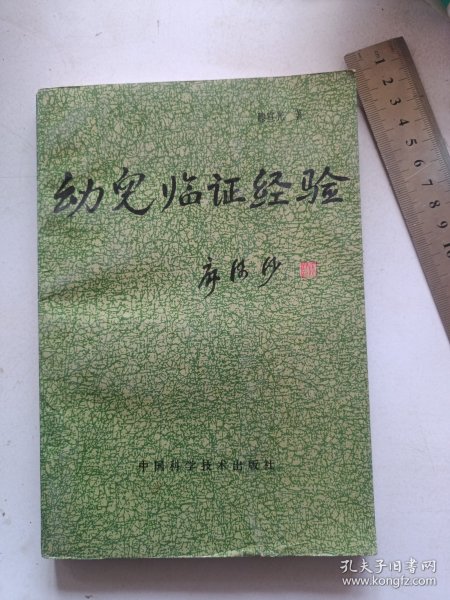 著
幼儿临证经验
中国科学技术出版社
1 2 3 4 5 6 7 8 9 10
孔夫子旧书网
www.kongfz.com